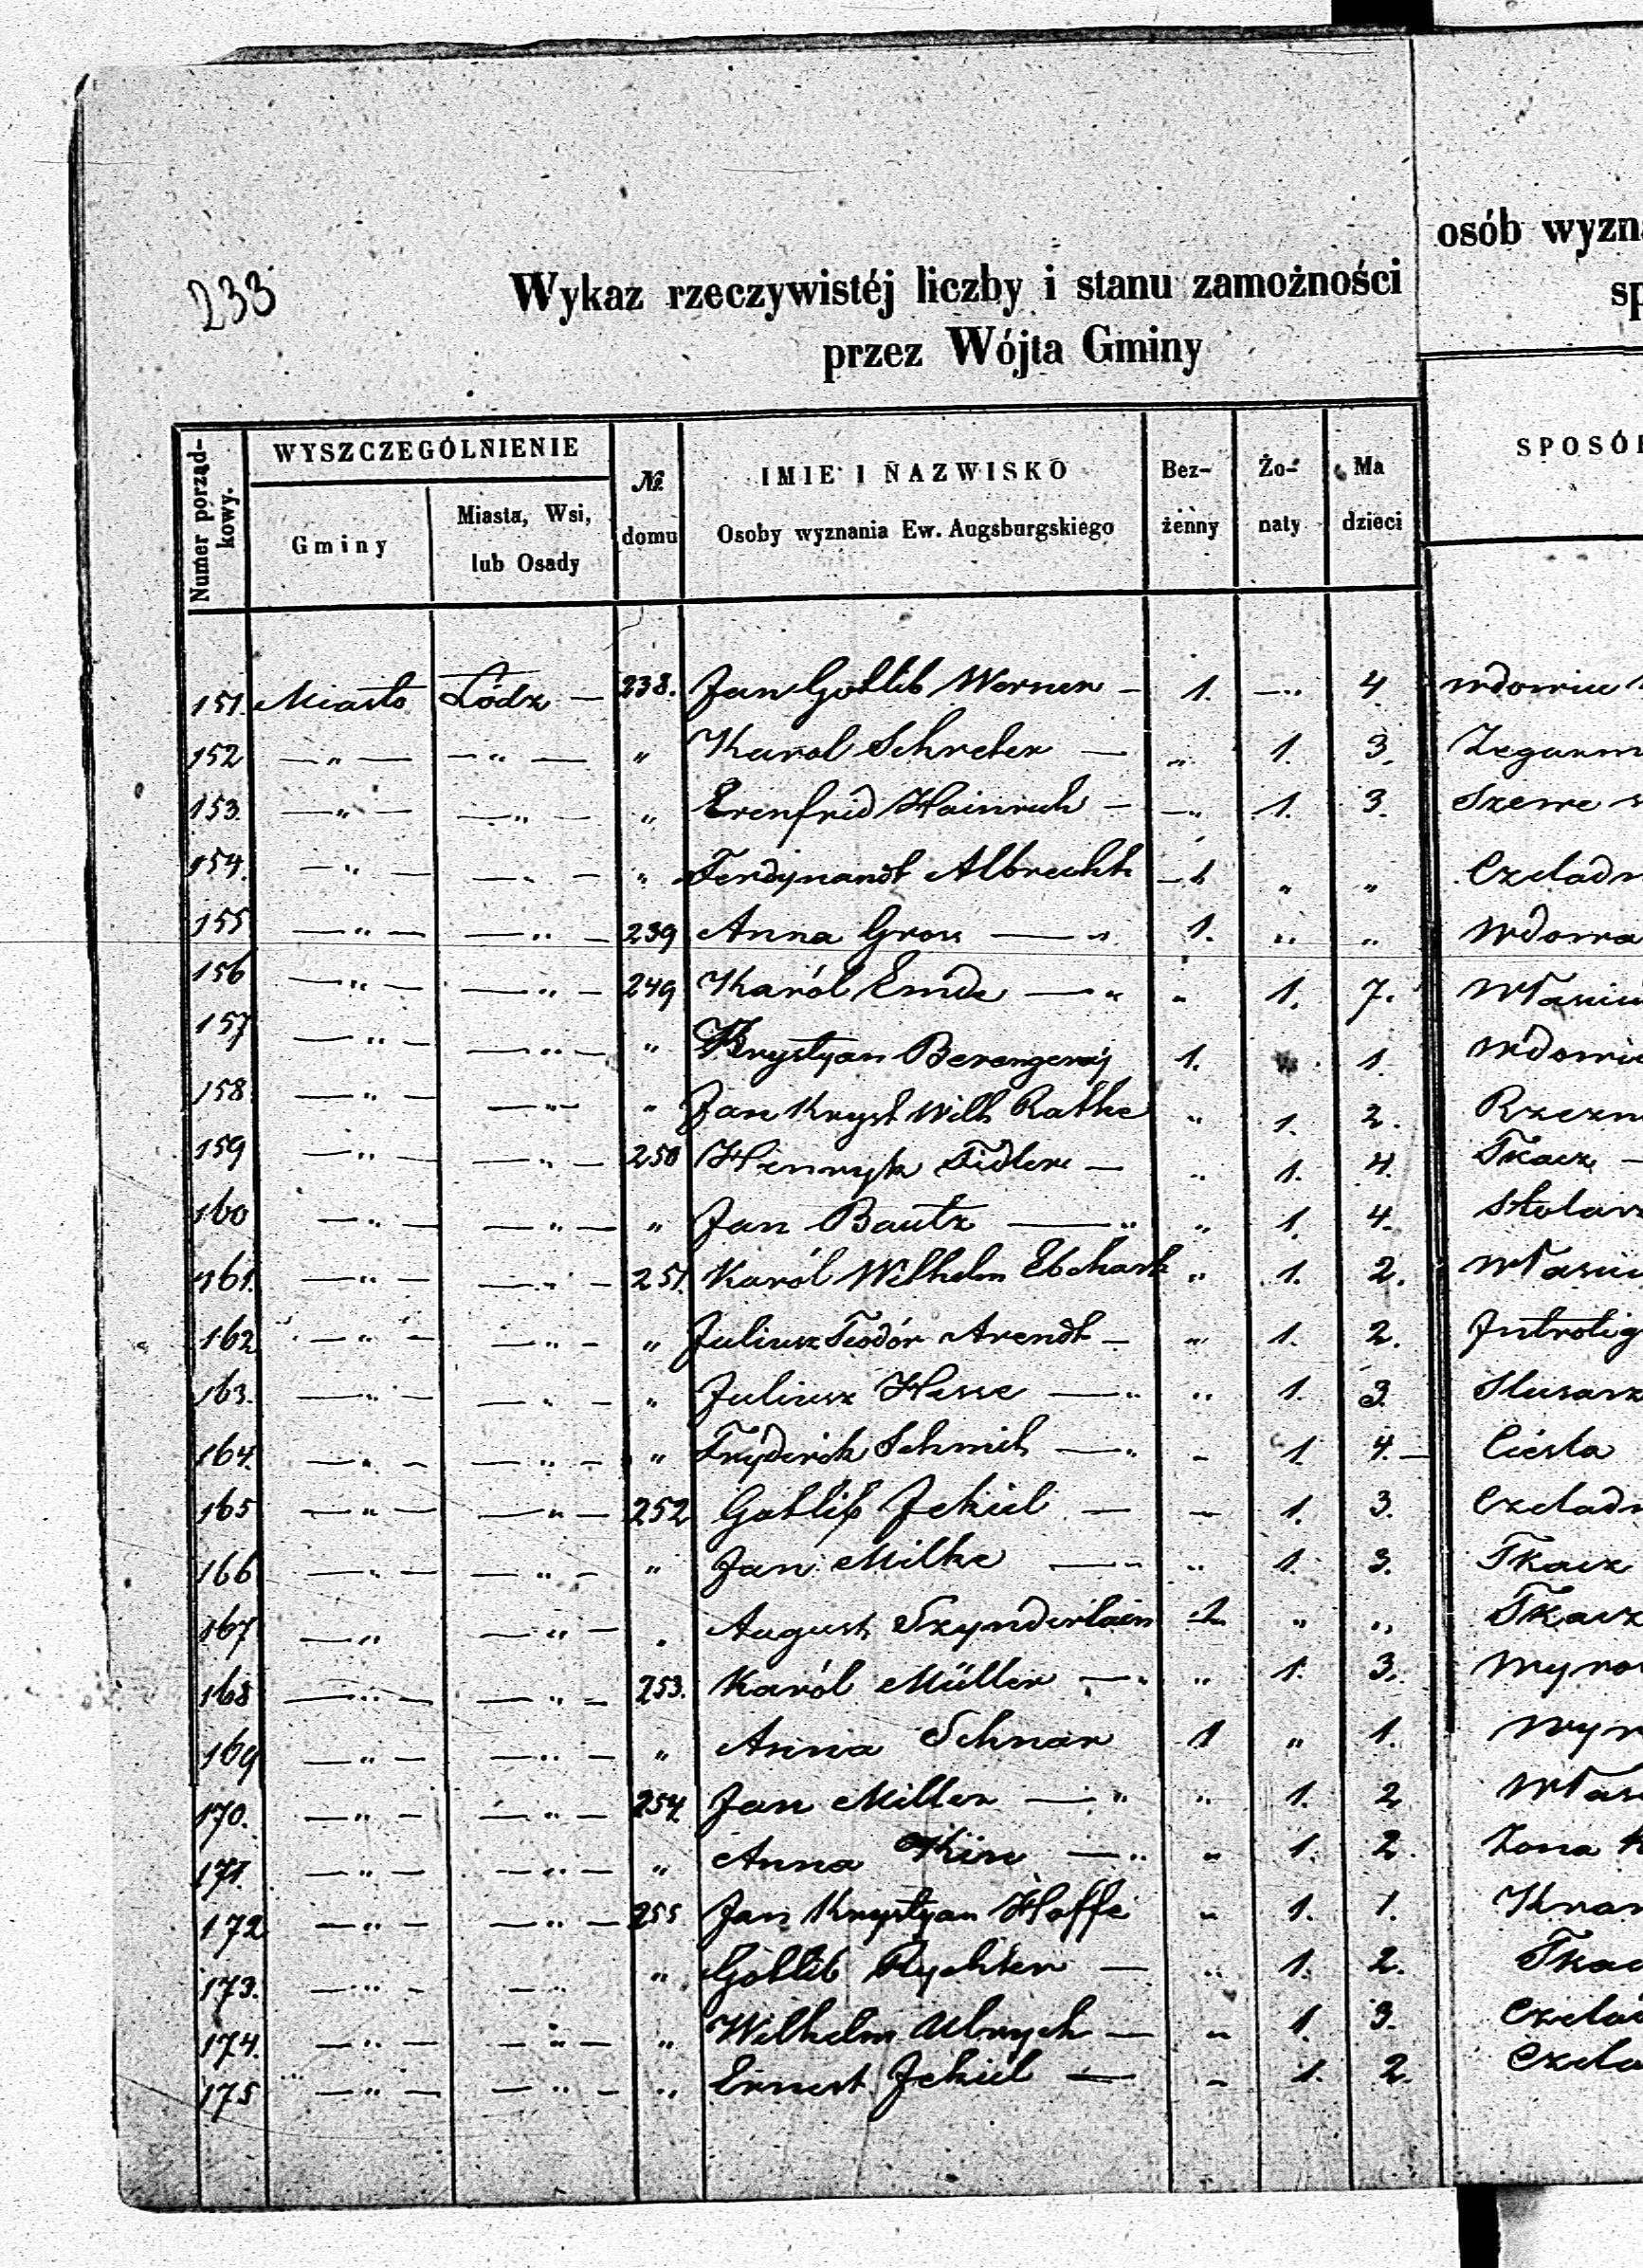 233
Wykaz rzeczywistéj liczby i stanu zamożności
przez Wójta Gminy
osób wyzn
sp
Numer porząd-
kowy.
WYSZCZEGÓLNIENIE
Gminy
Miasta, Wsi,
lub Osady
№
domu
IMIE I NAZWISKO
Osoby wyznania Ew. Augsburgskiego
Bez-
żenny
Żo-
naty
Ma
dzieci
SPOSÓ
151. Miasto Łódz — 238. Jan Gottlib Werner — 1. — " 4 wdowiec
152 — " — — " — " Karol Schreter — " 1. 3. Zegarm
153. — " — — " — " Erenfrid Hainrich — — " 1. 3. Szewc
154. — " — — " — " Ferdynandt Albrecht — 1 " " Czeladn
155 — " — — " — 239 Anna Gross — " 1. " " wdowa
156 — " — — " — 249 Karól Emde — " " 1. 7. Własci
157 — " — — " — " Krystyan 1. 1. wdowie
158 — " — — " — " Jan Kryst Wilh Rathe " 1. 2. Rzezn
159 — " — — " — 250 Henryk Fidler — " 1. 4. Tkacz —
160 — " — — " — " Jan Bautz — " " 1. 4. Stolarz
161. — " — — " — 251. Karól Wilhelm Ebehark " 1. 2. Własci
162 — " — — " — " Juliusz Teodór Arendt — " 1. 2. Jntrolig
163. — " — — " — " Juliusz Hesse — " " 1. 3 Slusarz
164. — " — — " — " Fryderik Schmit — " - 1 4. — Ciesla
165 — " — — " — 252 Gottlib Jekiel — — 1. 3. Czeladn
166 — " — — " — " Jan Milke — " " 1. 3. Tkacz
167 — " — " — " August Szynderlain 1 " " Tkacz
168 — " — — " — 253. Karól Müller — " " 1. 3. Wyro
169 — " — — " — " Anna Schnar 1 " 1. Wyr
170. — " — — " — 254 Jan Miller — " " 1. 2 Włas
171. — " — — " — " Anna — " " 1. 2. Zona
172 — " — — " — 255 Jan Krystyan Hoffe " 1. 1. Kram
173. — " — — " " Gottlib Rychter — " 1. 2. Tkac
174. — " — — " — " Wilhelm Ulrych — " 1. 3. Czela
175 — " — — " — " Ernest Jekiel — — 1. 2. Czela